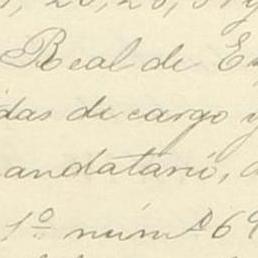 1, 20, 20, 31 y
Real de E
das de cargo y
andatario, d
1º núms 69